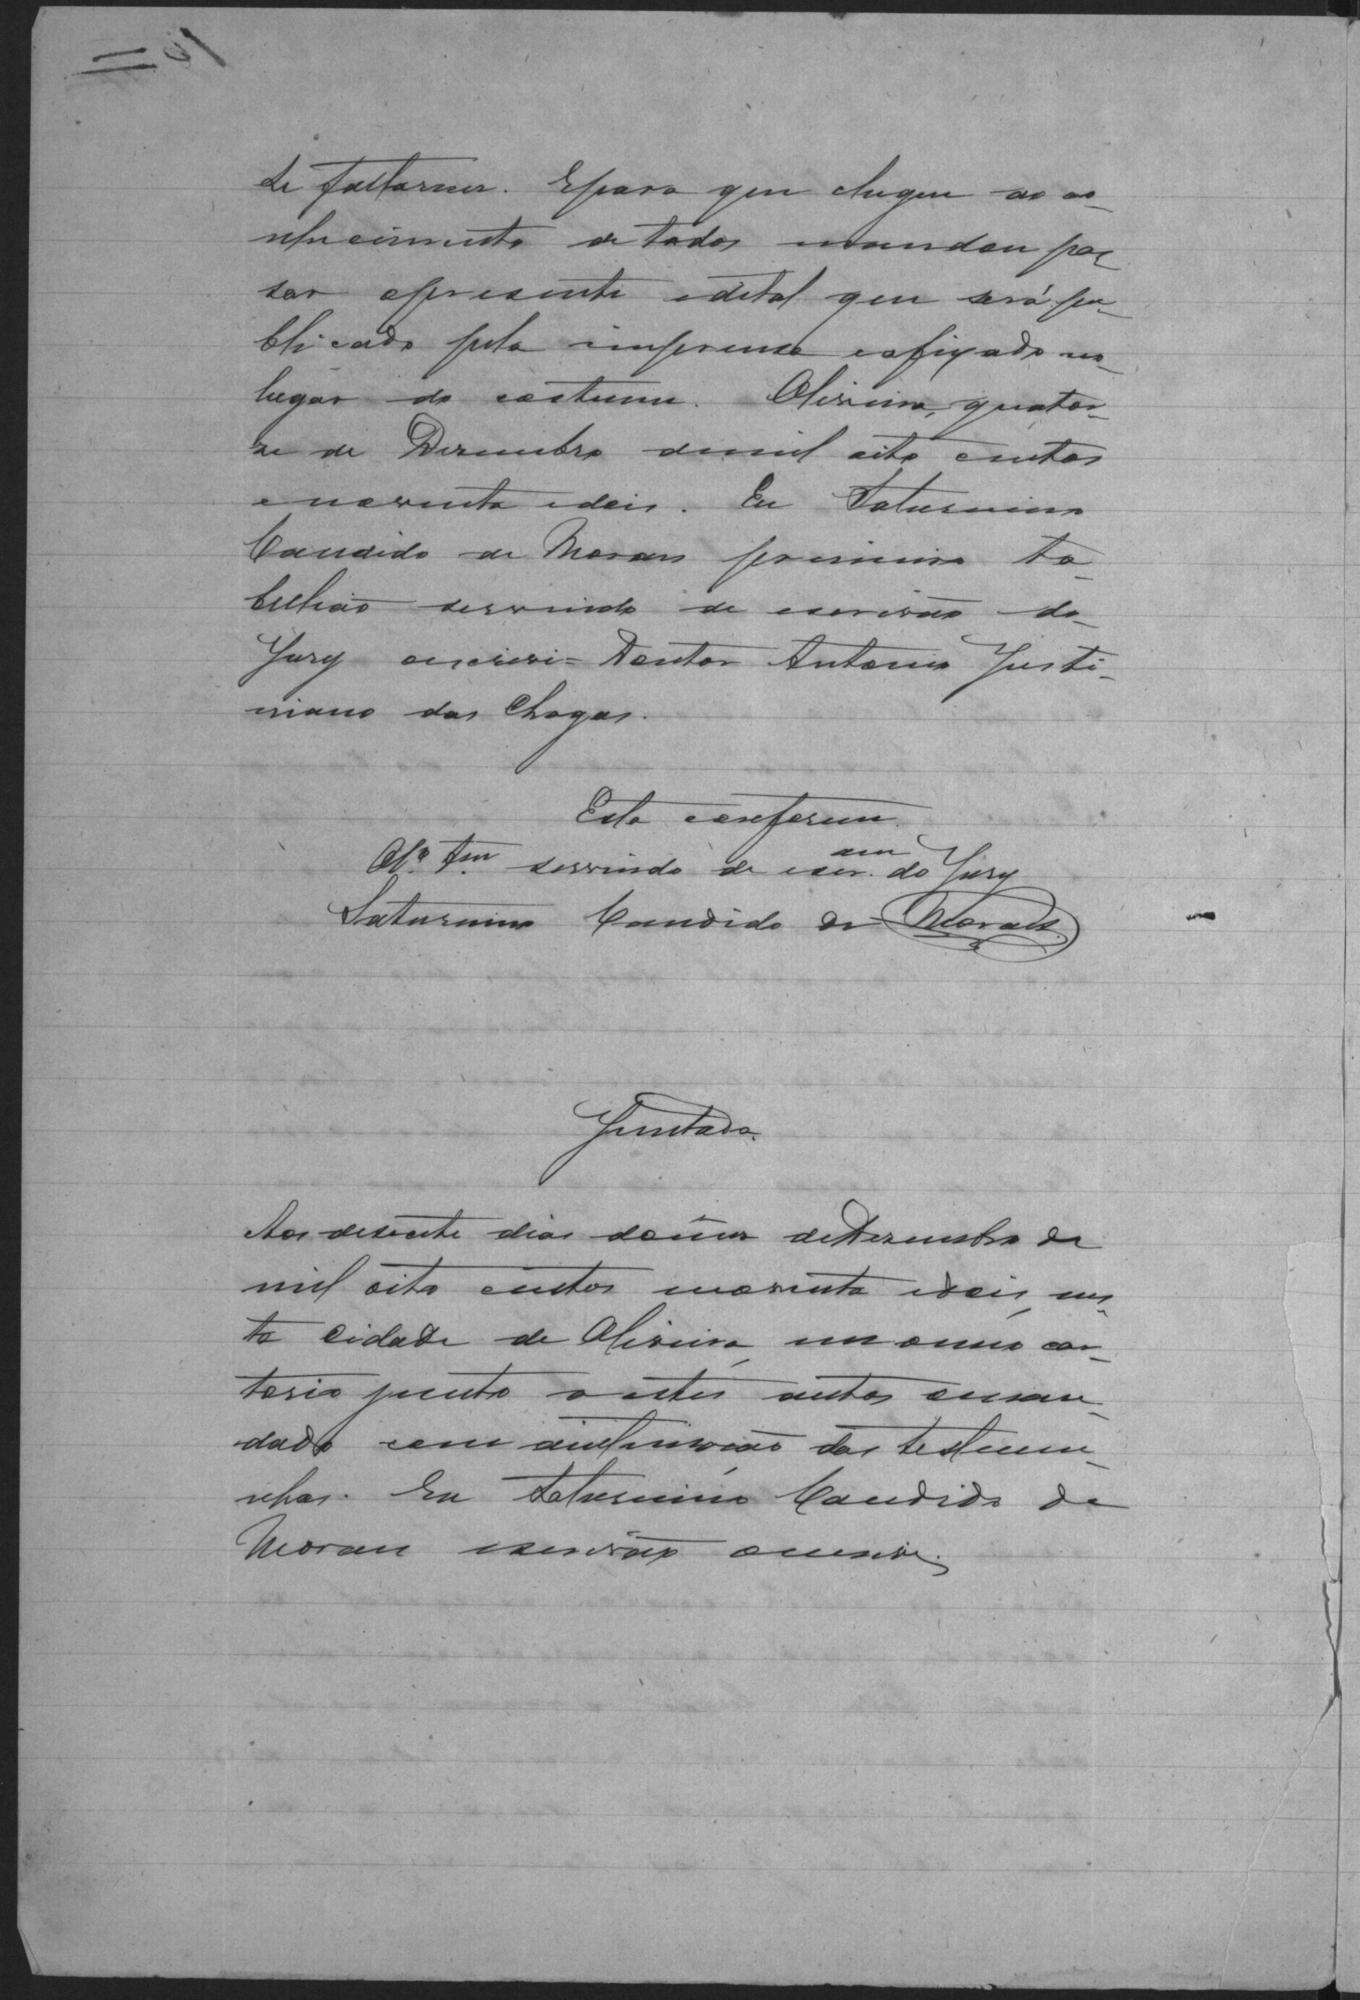 se faltarem. Epara que chegue ao co-
nhecimento de todos mandou pas
sar opresente edital que será pu-
blicado pela imprensa eafixado no
lugar do costume. Oliveira, quator-
ze de Dezembro demil oito centos
enoventa edois. Eu Saturnino
Candido de Moraes primeiro ta-
bellião servindo de escrivão do
Jury oescrevi = Doutor Antonio Justi-
niano das Chagas.
Está conforme.
servindo de escr. do Jury
Saturnino Candido de Moraes
Juntada.
Aos desesete dias domez deDezembro de
mil oito centos enoventa edois, nes-
ta Cidade de Oliveira, em omeo car-
torio junto a estes autos oman-
dado com aintimação das testemu-
nhas. Eu Saturnino Candido de
Moraes escrivão oescrevi.